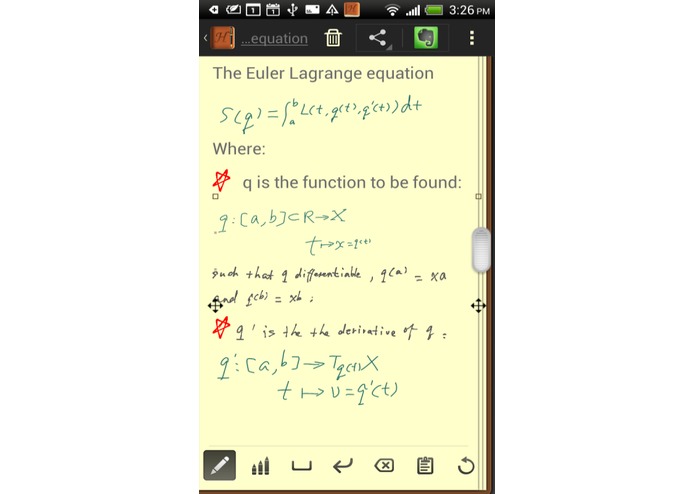 3:26 PM
...equation
The Euler Lagrange equation
S(q) = ∫ₐᵇ L(t, q(t), q'(t)) dt
Where:
q is the function to be found:
q: [a, b] ⊂ R → X
t ↦ x = q(t)
such that q differentiable, q(a) = xa
and q(b) = xb;
q' is the the derivative of q:
q': [a, b] → T_q(t) X
t ↦ v = q'(t)